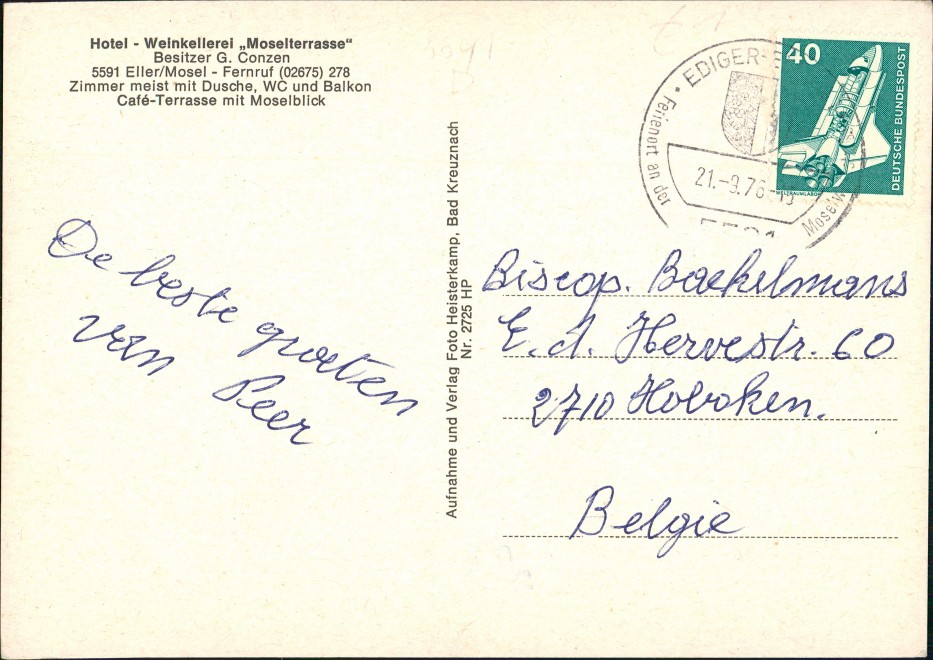 Hotel - Weinkellerei „Moselterrasse“
Besitzer G. Conzen
5591 Eller/Mosel - Fernruf (02675) 278
Zimmer meist mit Dusche, WC und Balkon
Café-Terrasse mit Moselblick
De beste groeten
van Peer
Aufnahme und Verlag Foto Heisterkamp, Bad Kreuznach
Nr. 2725 HP
EDIGER-E
Ferienort an der
21.-9.76-
40
DEUTSCHE BUNDESPOST
WELTRAUMLABOR
Biscop. Backelmans
E. d. Hervestr. 60
2710 Hoboken.
Belgie